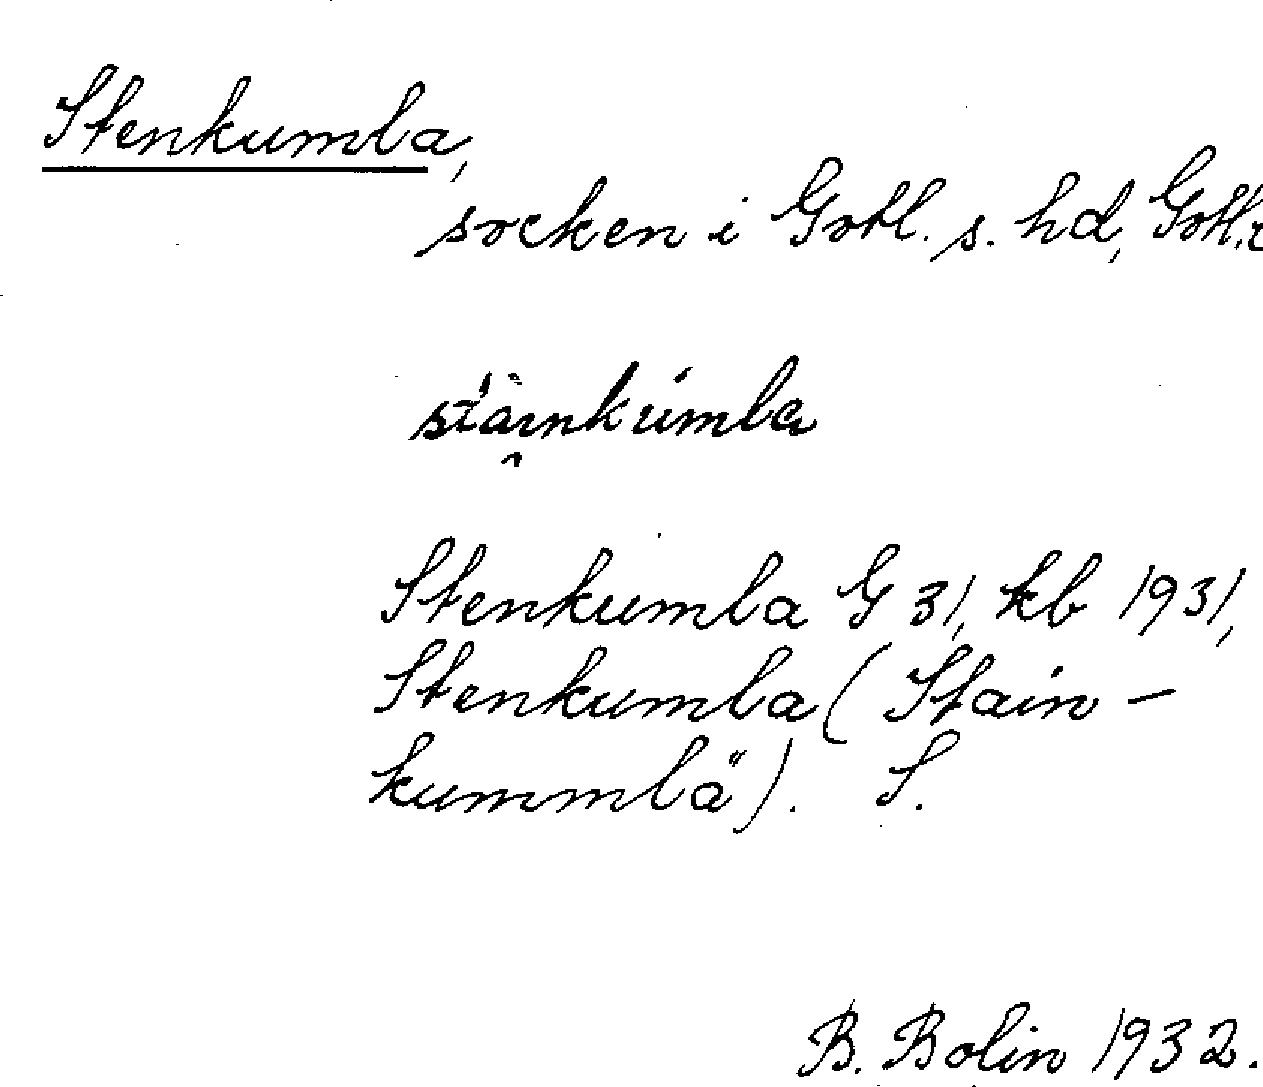 Stenkumla,
socken i Gotl. s. hd, Gotl.
Stenkumla G 31, kb 1931,
Stenkumla (Stain-
kummlä). S.
B. Bolin 1932.